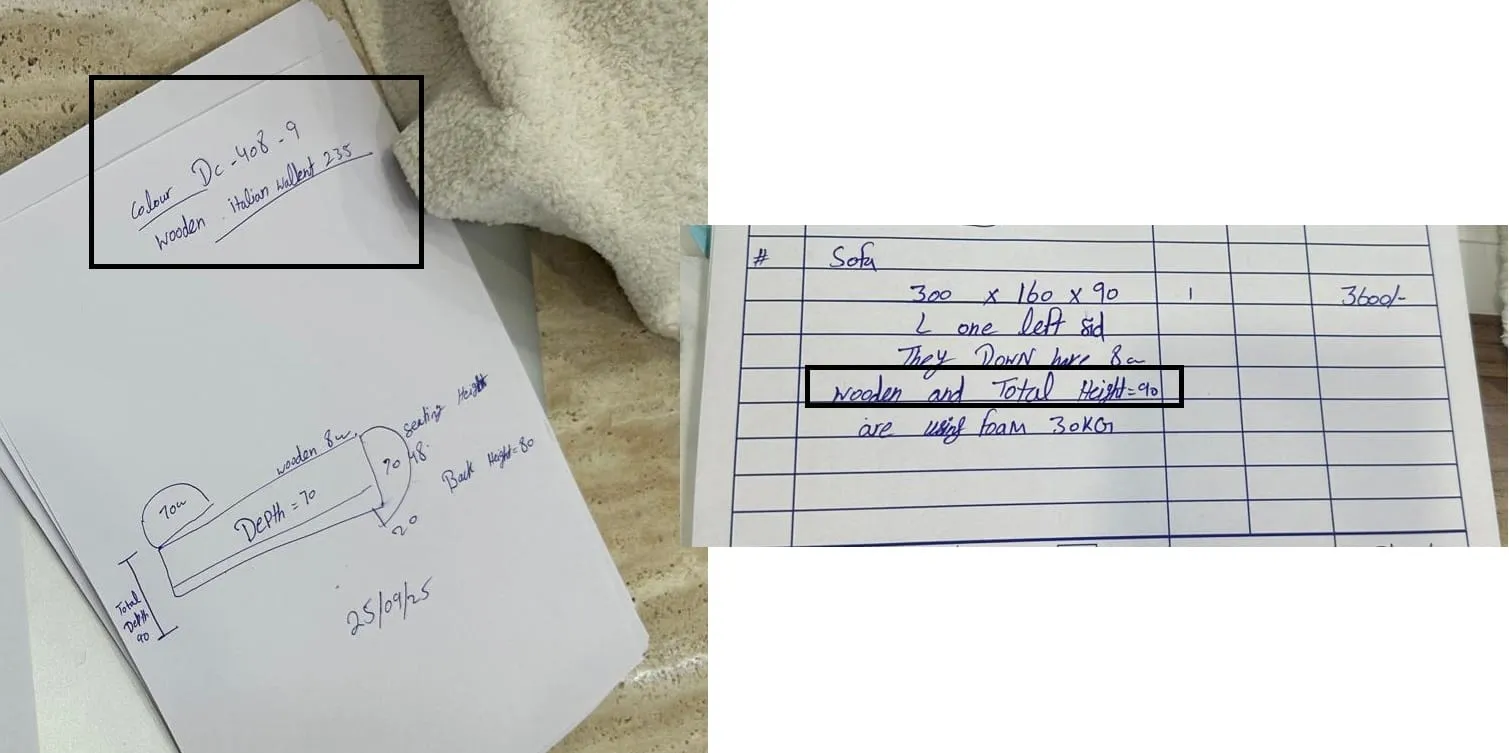 Colour Dc-408-9
wooden. italian wallent 235
wooden 8
seating Height
48.
Back Height=80
Depth = 70
20
Total
Depth
90
25/09/25
# Sofa
300 x 160 x 90 1 3600/-
L one left sid
They DOWN have 8
wooden and Total Height=90
are using foam 30KG